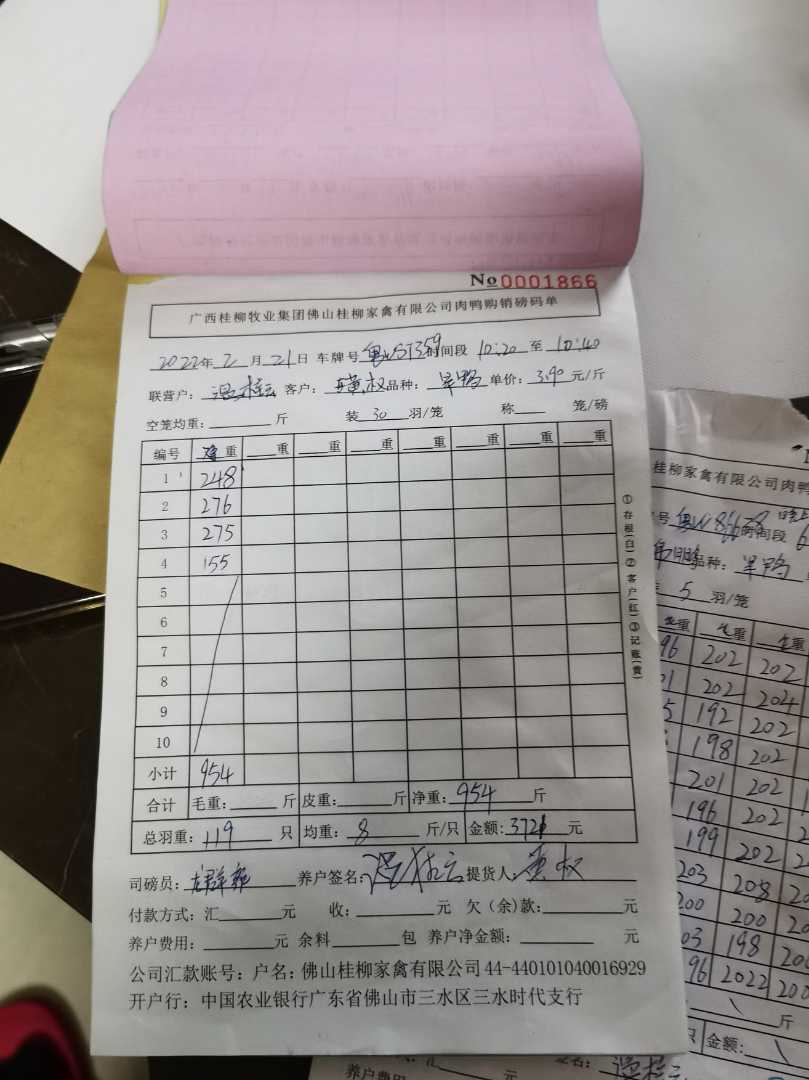 No 0001866
广西桂柳牧业集团佛山桂柳家禽有限公司肉鸭购销磅码单
2022年 2月21日 车牌号 粤 时间段 10:20 至 10:40
联营户: 客户: 权 品种: 单价: 3.90 元/斤
空笼均重: 斤 装 30 羽/笼 称 笼/磅
编号 重 重 重 重 重 重 重 重
1 248
2 276
3 275
4 155
5
6
7
8
9
10
小计 954
合计 毛重: 斤 皮重: 斤 净重: 954 斤
总羽重: 119 只 均重: 8 斤/只 金额: 3721 元
司磅员: 养户签名: 提货人: 权
付款方式:汇 元 收: 元 欠(余)款: 元
养户费用: 元 余料 包 养户净金额: 元
公司汇款账号:户名:佛山桂柳家禽有限公司 44-440101040016929
开户行:中国农业银行广东省佛山市三水区三水时代支行
①存根(白)②客户(红)③记账(黄)
桂柳家禽有限公司肉鸭
号 粤 时间段 6
品种:
5 羽/笼
重 重 重
96 202 202
01 202 204
5 192 202
198 202
201 202
196 202
199 202
203 208
200 200
03 198
96 2022 200
斤
只 金额:
养户费用 元